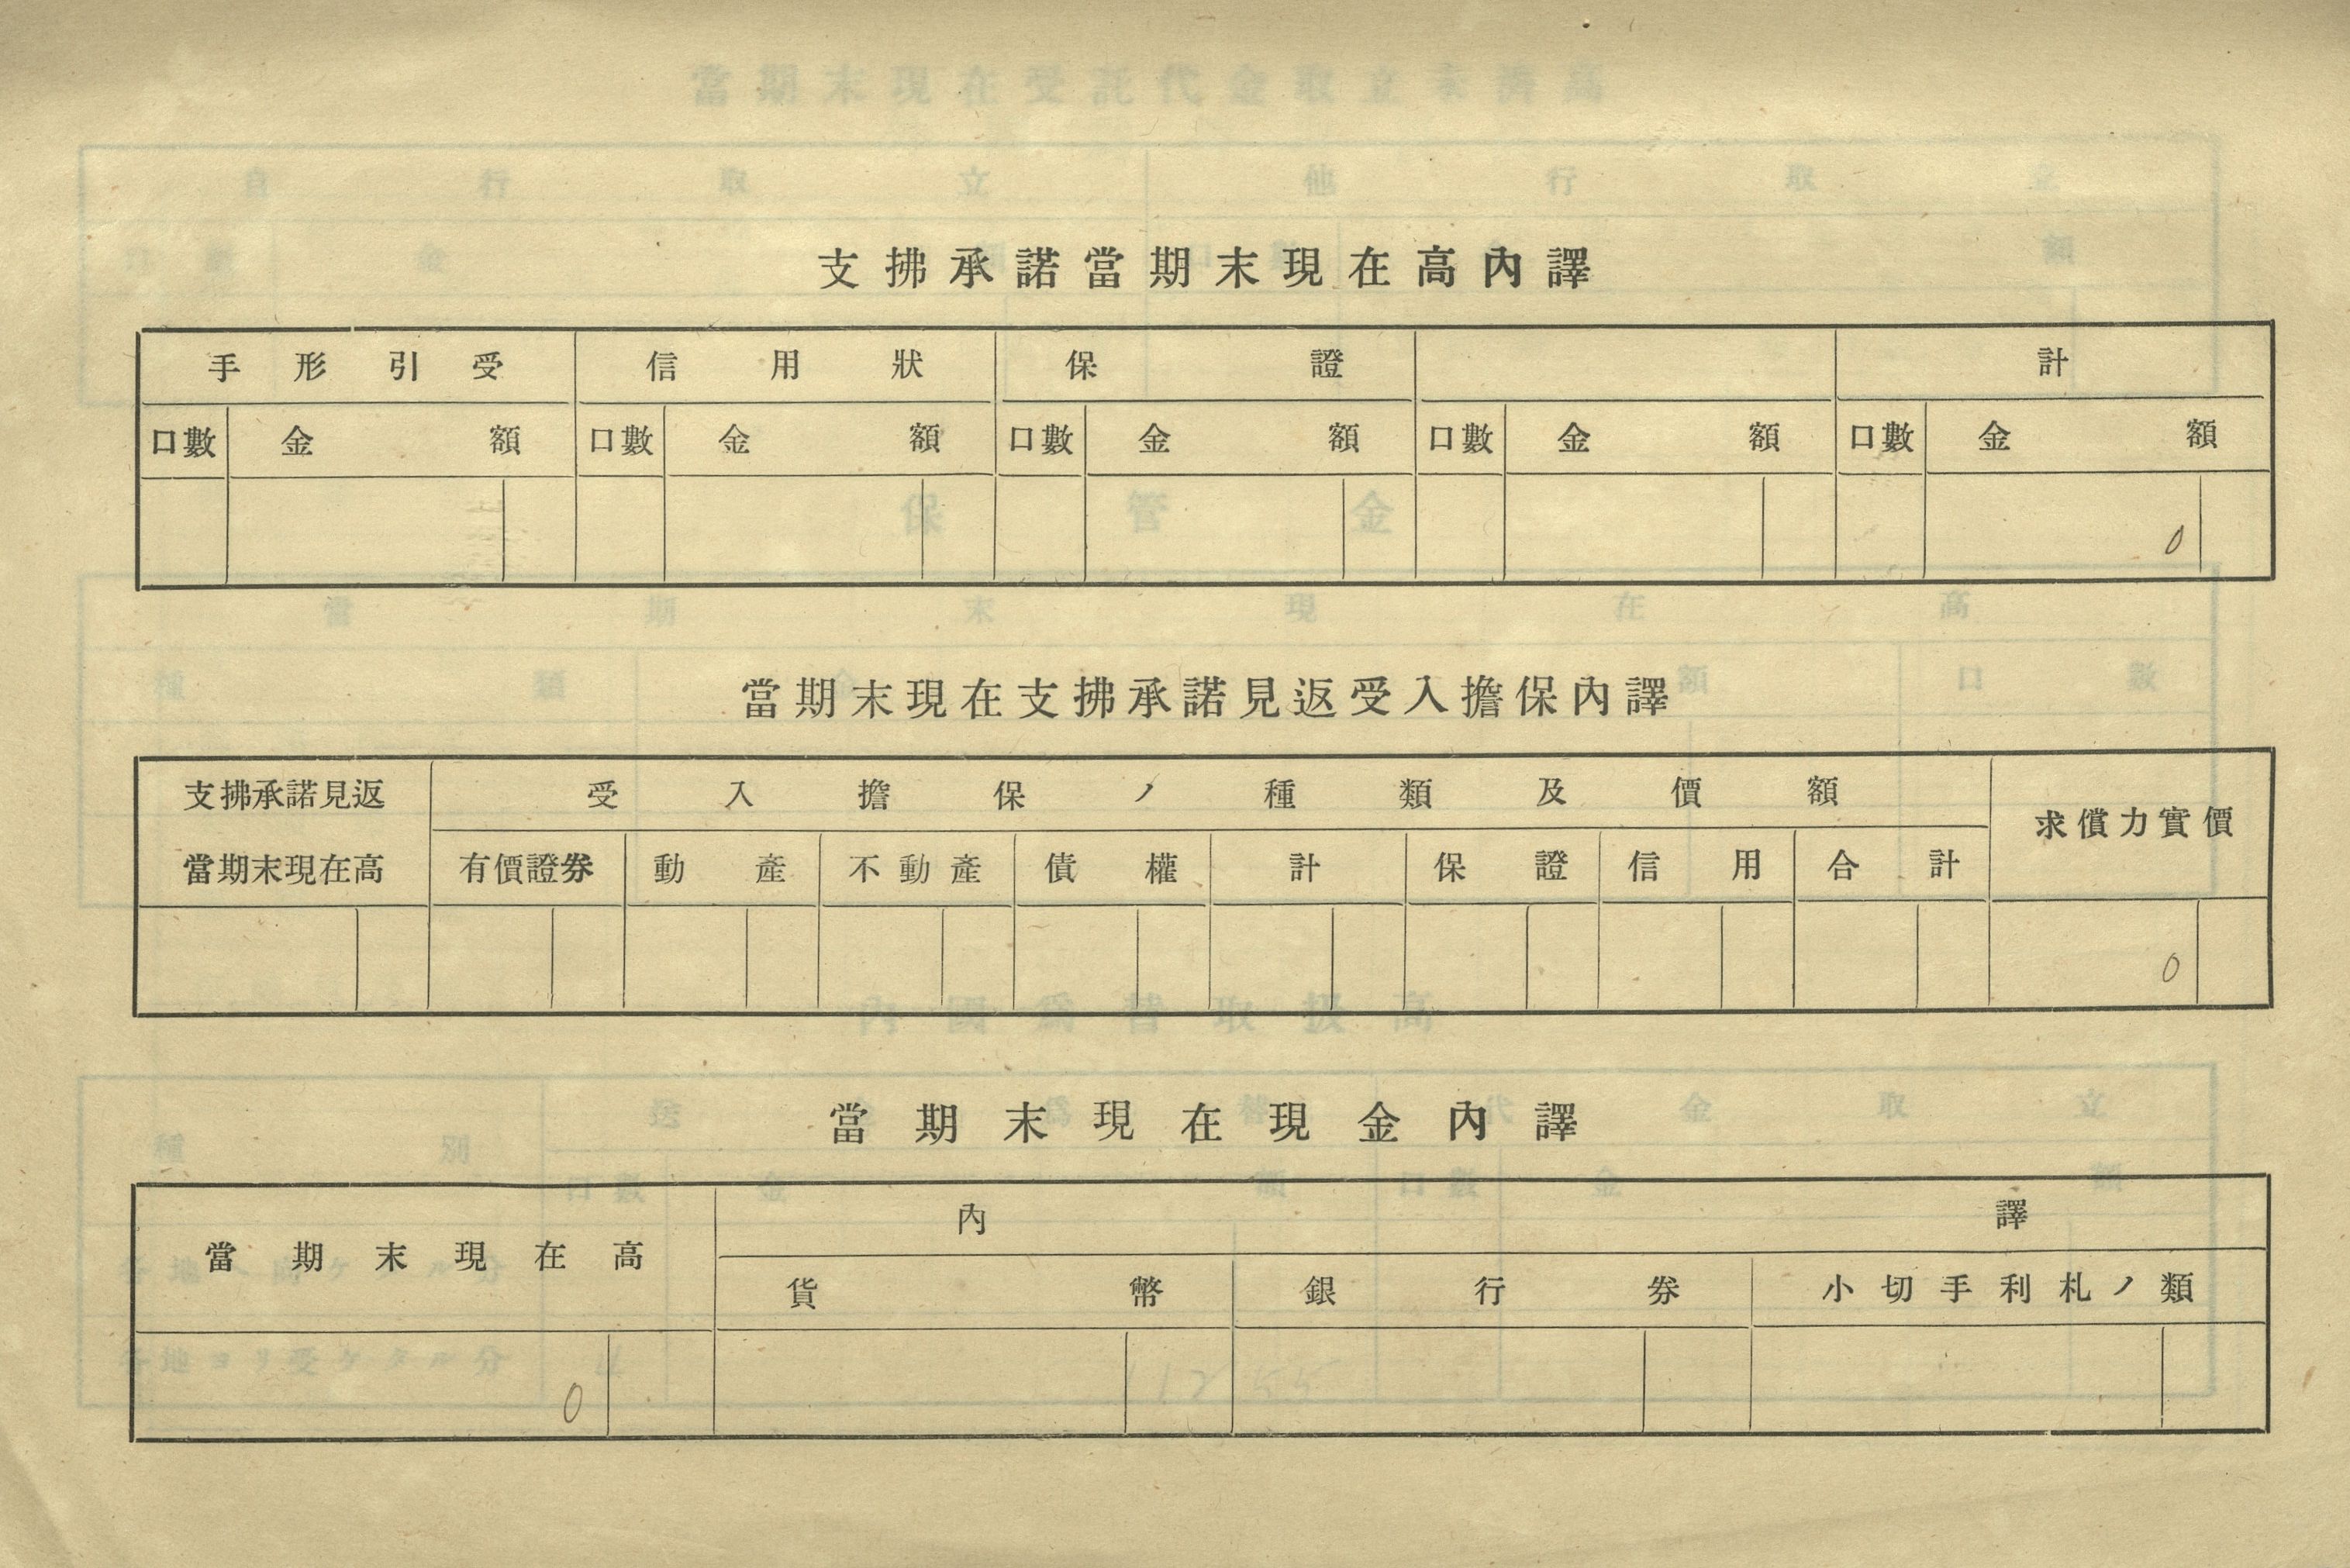 支拂承諾當期末現在高內譯
手形引受 信用狀 保證 計
口數 金額 口數 金額 口數 金額 口數 金額 口數 金額
0
當期末現在支拂承諾見返受入擔保內譯
支拂承諾見返 受入擔保ノ種類及價額 求償力實價
當期末現在高 有價證券 動產 不動產 債權 計 保證 信用 合計
0
當期末現在現金內譯
當期末現在高 內譯
貨幣 銀行券 小切手利札ノ類
0